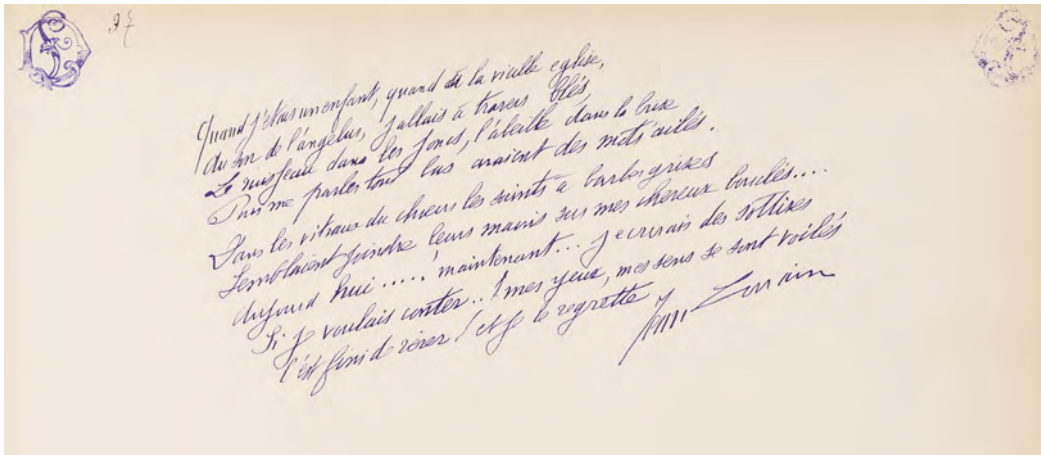 97
Quand j'étais un enfant, quand de la vieille eglise,
du son de l'angelus, j'allais à travers blés,
Le ruisseau dans les joncs, l'abeille dans la brise
Pour me parler tout bas avaient des mots ailés.
Dans les vitraux du choeur les saints a barbes grises
Semblaient joindre leurs mains sur mes cheveux bouclés....
aujourd hui.....! maintenant... j'ecrirais des sottises
Si je voulais conter..! mes yeux, mes sens se sont voilés
C'est fini de rêver! et je le regrette
Jean Lorrain